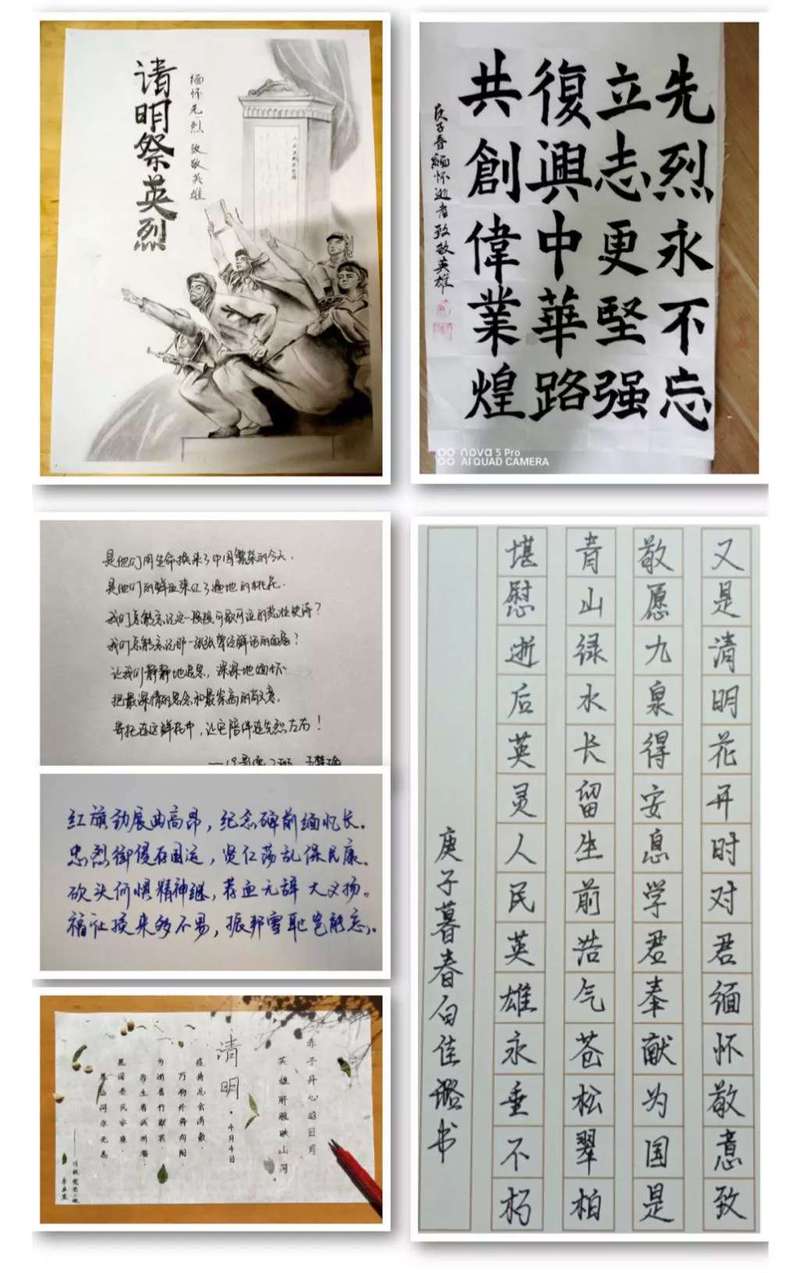 清明祭英烈
缅怀先烈 致敬英雄
先烈永不忘
立志更坚强
復興中華路
共創偉業煌
庚子春緬怀逝者致敬英雄
nova 5 Pro
AI QUAD CAMERA
是他们用生命换来了中国繁荣的今天.
是他们的鲜血染红了遍地的桃花.
我们怎能忘记这一段段可歌可泣的壮烈史诗?
我们怎能忘记那一张张曾经鲜活的面容?
让我们静静地追思, 深深地缅怀
把最深情的思念和最崇高的敬意.
寄托在这鲜花中, 让它陪伴在先烈左右!
红旗劲展曲高昂, 纪念碑前缅忆长.
忠烈御侵存国运, 贤仁荡乱保民康.
砍头何惧精神继, 荐血无辞大义扬.
福祉换来多不易, 振邦雪耻岂能忘.
赤子丹心昭日月
英雄肝胆映山河
清明·4月4日
又是清明花开时对君缅怀敬意致
敬愿九泉得安息学君奉献为国是
青山绿水长留生前浩气苍松翠柏
堪慰逝后英灵人民英雄永垂不朽
庚子暮春白佳璐书